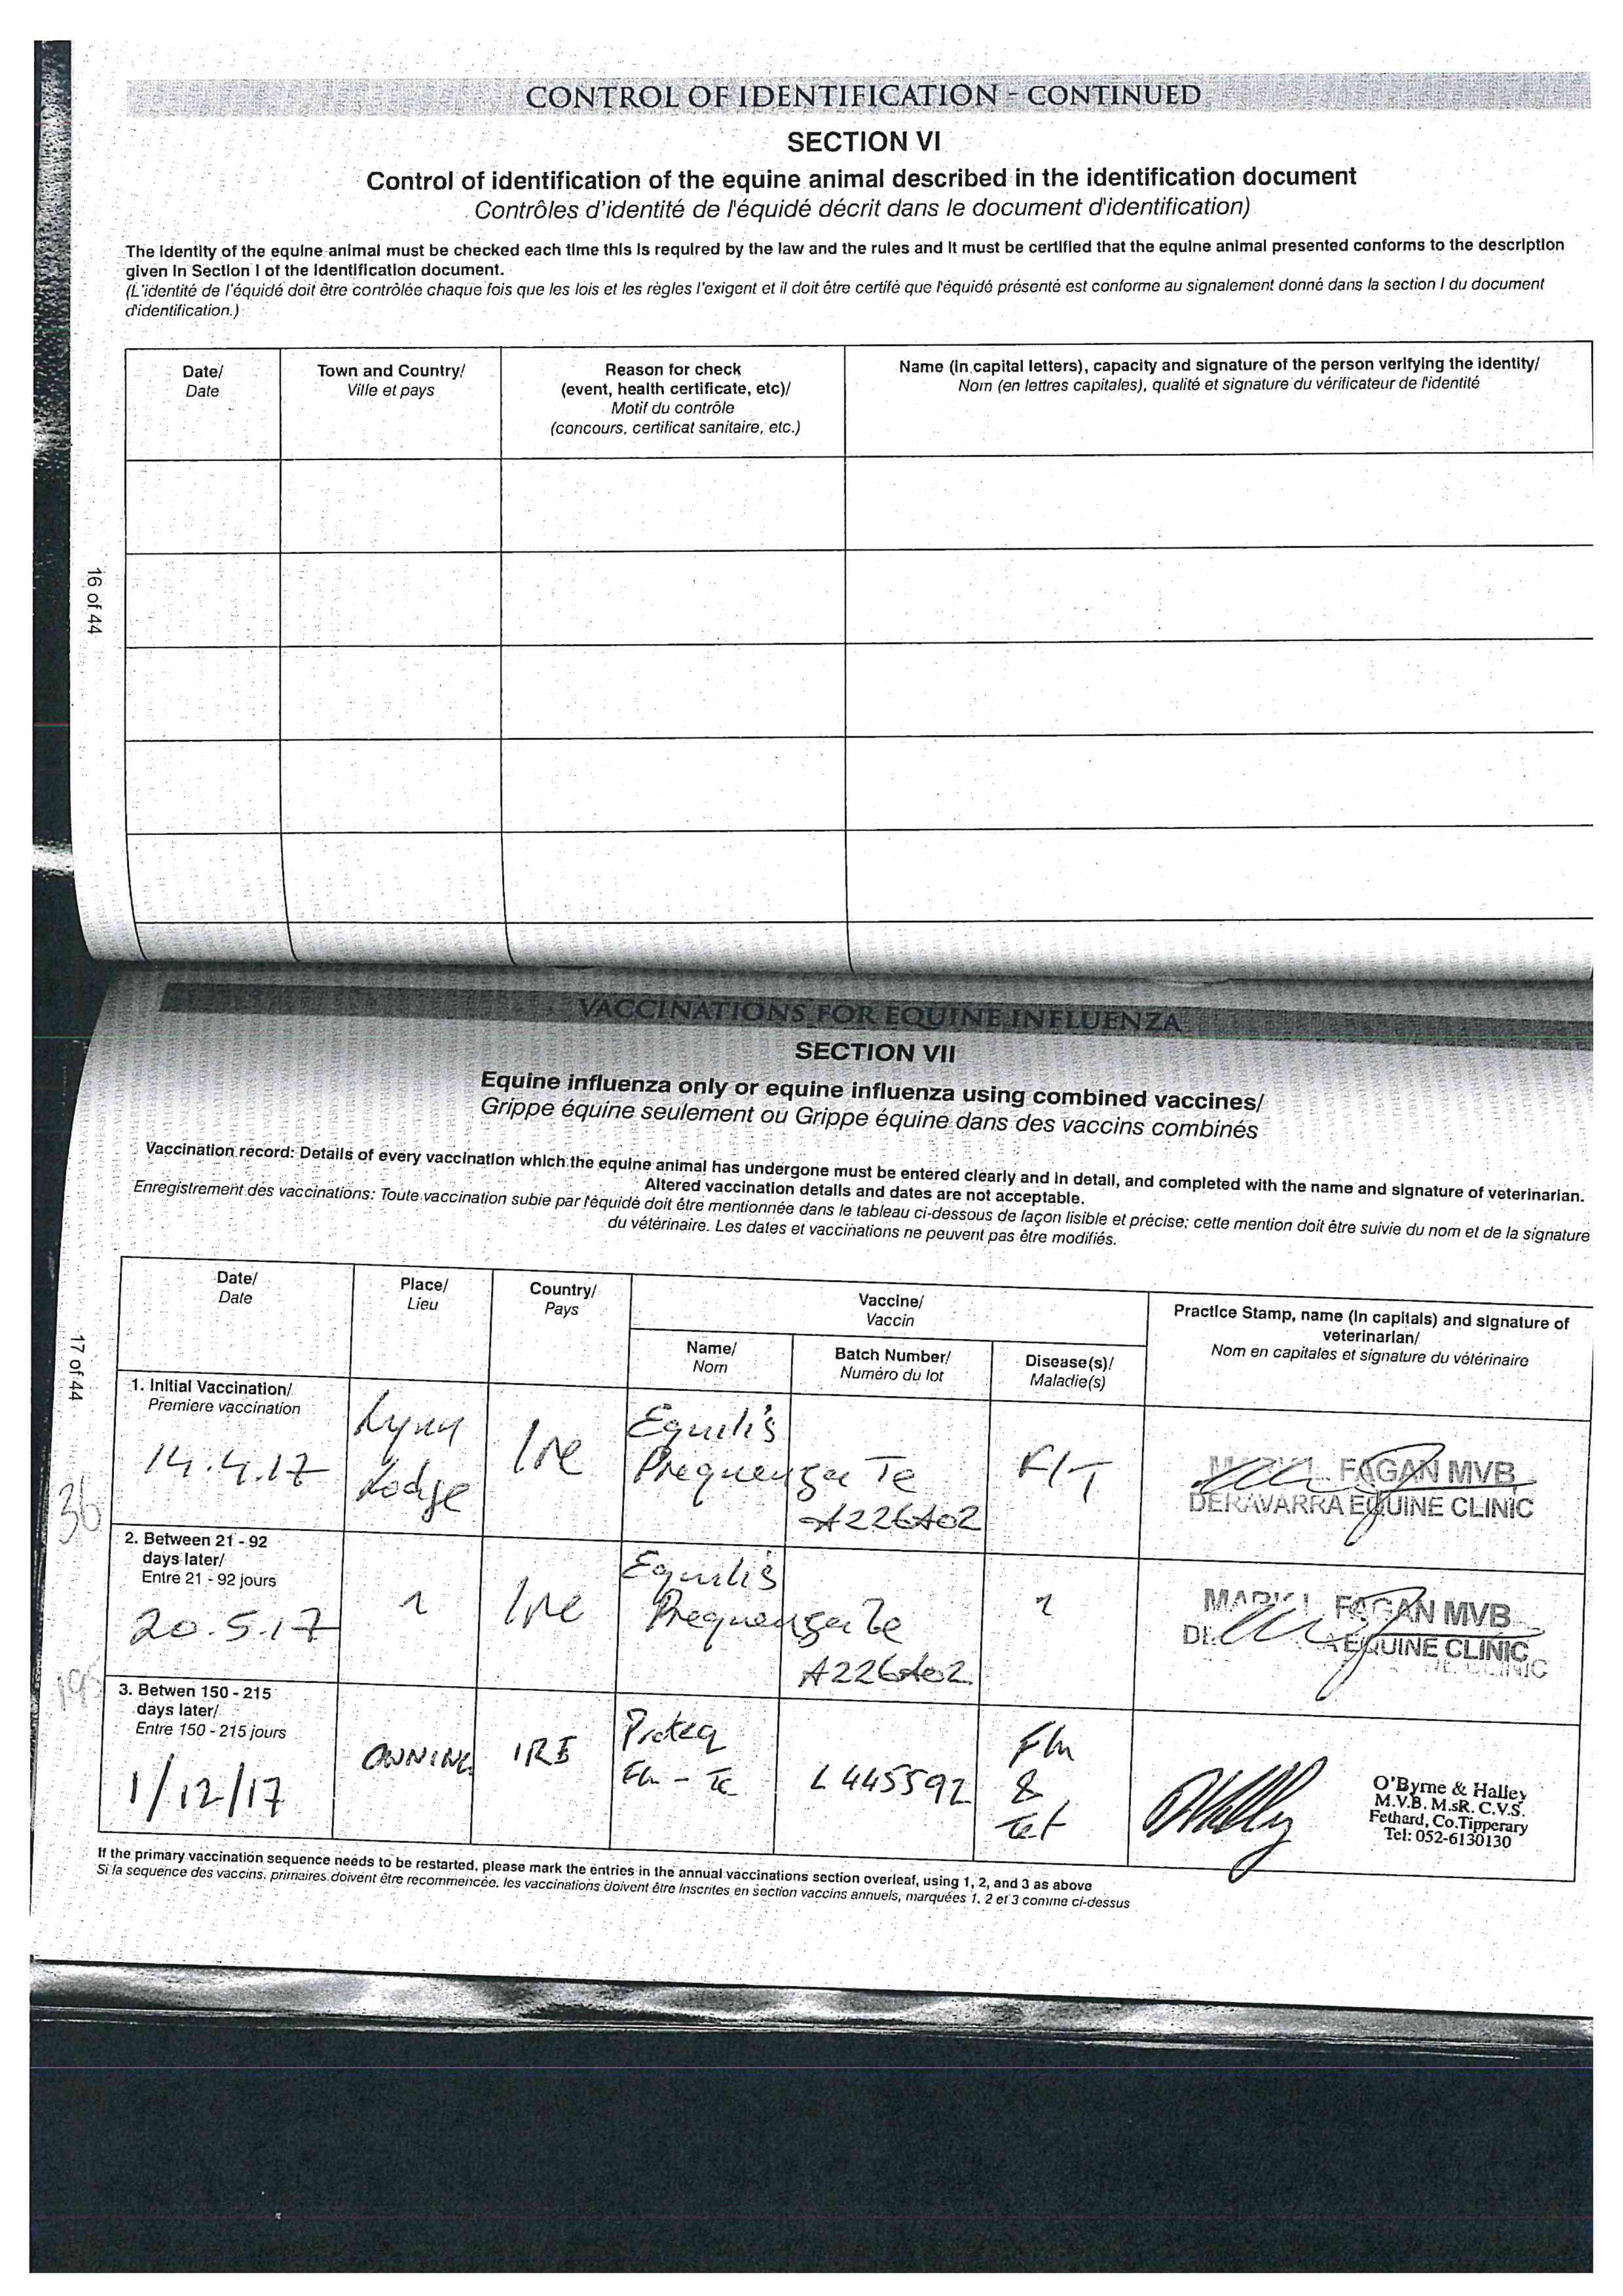 CONTROL OF IDENTIFICATION - CONTINUED
SECTION VI
Control of identification of the equine animal described in the identification document
Contrôles d'identité de l'équidé décrit dans le document d'identification)
The identity of the equine animal must be checked each time this is required by the law and the rules and it must be certified that the equine animal presented conforms to the description
given in Section I of the identification document.
(L'identité de l'équidé doit être contrôlée chaque fois que les lois et les règles l'exigent et il doit être certifé que l'équidé présenté est conforme au signalement donné dans la section I du document
d'identification.)
Date/
Date
Town and Country/
Ville et pays
Reason for check
(event, health certificate, etc)/
Motif du contrôle
(concours, certificat sanitaire, etc.)
Name (in capital letters), capacity and signature of the person verifying the identity/
Nom (en lettres capitales), qualité et signature du vérificateur de l'identité
16 of 44
VACCINATIONS FOR EQUINE INFLUENZA
SECTION VII
Equine influenza only or equine influenza using combined vaccines/
Grippe équine seulement ou Grippe équine dans des vaccins combinés
Vaccination record: Details of every vaccination which the equine animal has undergone must be entered clearly and in detail, and completed with the name and signature of veterinarian.
Altered vaccination details and dates are not acceptable.
Enregistrement des vaccinations: Toute vaccination subie par l'équidé doit être mentionnée dans le tableau ci-dessous de façon lisible et précise; cette mention doit être suivie du nom et de la signature
du vétérinaire. Les dates et vaccinations ne peuvent pas être modifiés.
Date/
Date
Place/
Lieu
Country/
Pays
Vaccine/
Vaccin
Name/
Nom
Batch Number/
Numéro du lot
Disease(s)/
Maladie(s)
Practice Stamp, name (in capitals) and signature of
veterinarian/
Nom en capitales et signature du vétérinaire
17 of 44
1. Initial Vaccination/
Premiere vaccination
14.4.17
Lynn
Lodge
Ire
Equilis
Prequenza Te
A226A02
F/T
FAGAN MVB
DERAVARRA EQUINE CLINIC
36
2. Between 21 - 92
days later/
Entre 21 - 92 jours
20.5.17
Ire
Equilis
Prequenza Te
A226A02
MARK FAGAN MVB
EQUINE CLINIC
195
3. Betwen 150 - 215
days later/
Entre 150 - 215 jours
1/12/17
OWNING
IRE
Proteq
Flu - Te
L445592
Flu
&
Tet
O'Byrne & Halley
M.V.B. M.sR. C.V.S.
Fethard, Co.Tipperary
Tel: 052-6130130
If the primary vaccination sequence needs to be restarted, please mark the entries in the annual vaccinations section overleaf, using 1, 2, and 3 as above
Si la sequence des vaccins, primaires doivent être recommencée, les vaccinations doivent être inscrites en section vaccins annuels, marquées 1, 2 et 3 comme ci-dessus